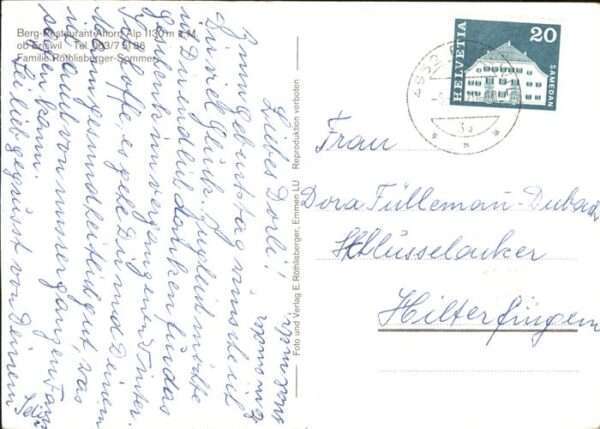 Berg-Restaurant Ahorn Alp 1130 m ü. M.
ob Eriswil Tel. 063/7 81 86
Familie Röthlisberger-Sommer
Foto und Verlag E. Röthlisberger, Emmen LU Reproduktion verboten
HELVETIA
20
SAMEDAN
Liebes Dorli!
Zum Geburtstag wünsche ich
Dir viel Glück. Zugleich möchte
ich Dir endlich danken für das
Geschenk im vergangenen Winter.
Ich hoffe, es gehe Dir und Deinem
Mann gesundheitlich gut, was
ich auch von unserer ganzen Fam.
sagen kann.
Sei lieb gegrüsst von Deinem
Frau
Dora Fülleman-Dubach
Schlüsselacker
Hilterfingen